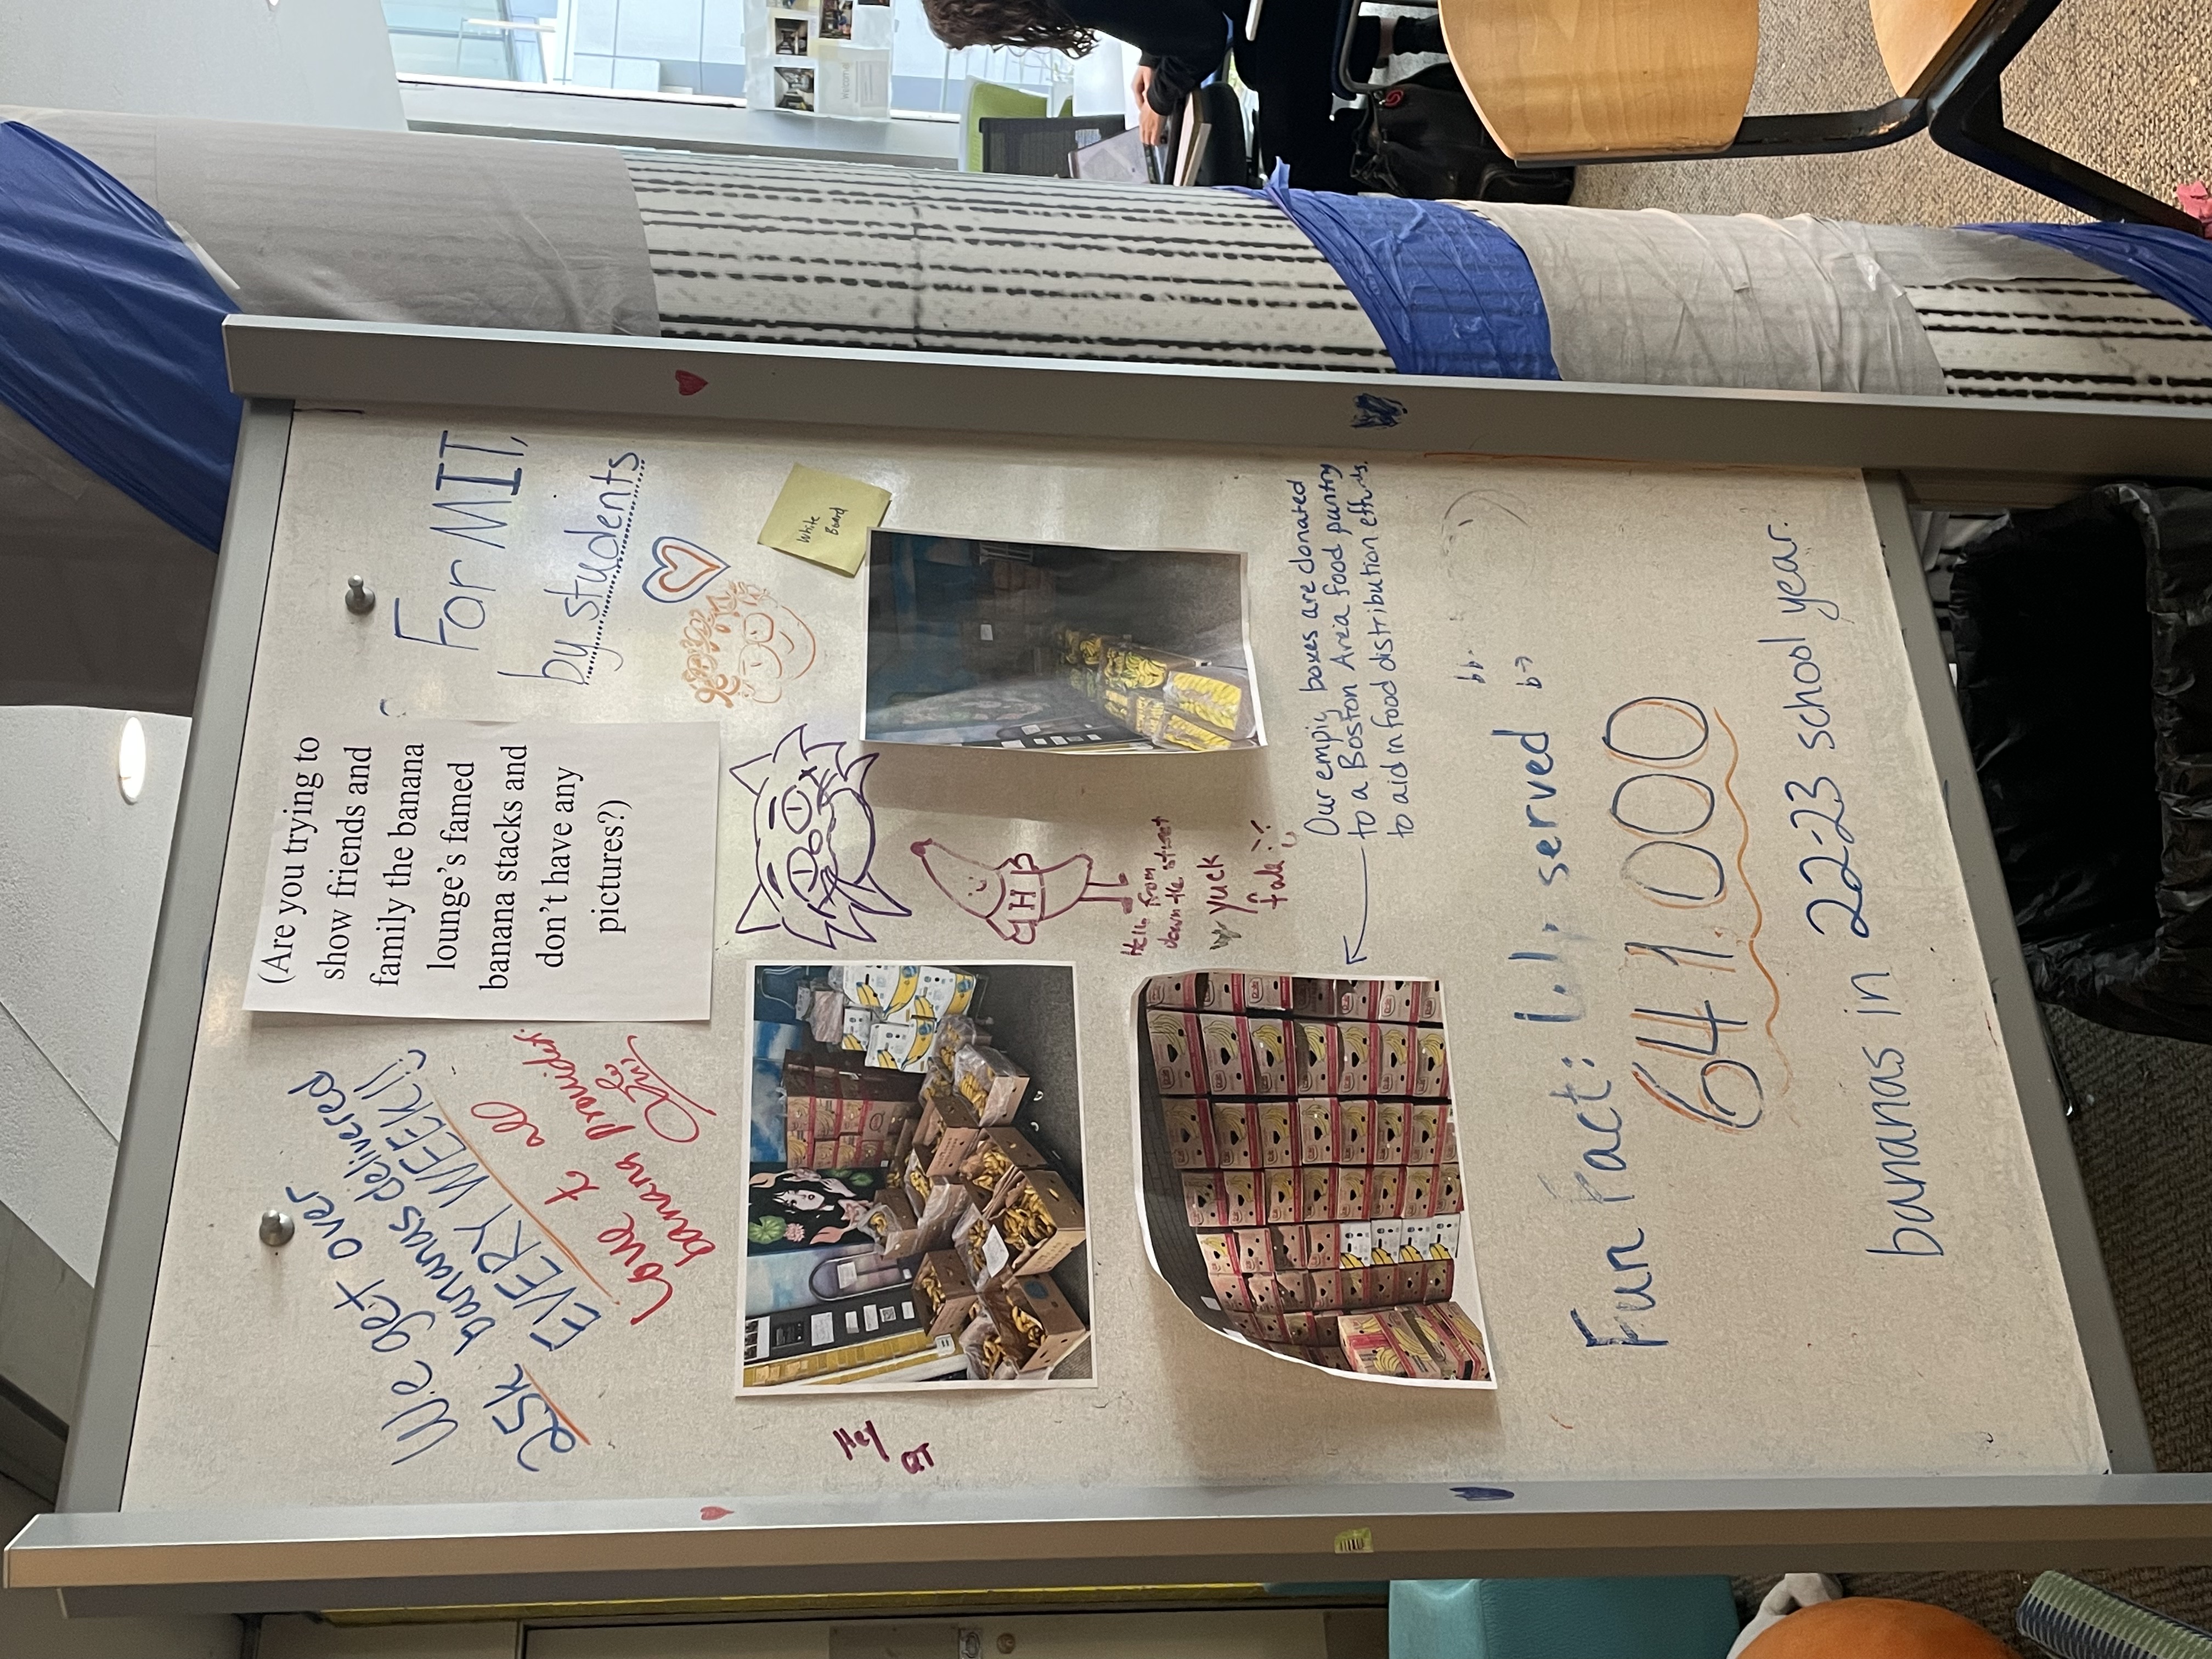 We get over
25k bananas delivered
EVERY WEEK!!
Love to all
banana provider.
(Are you trying to
show friends and
family the banana
lounge's famed
banana stacks and
don't have any
pictures?)
For MIT,
by students
White
Board
Hey
QT
H
Hello from
down the street
yuck
fake
Our empty boxes are donated
to a Boston Area food pantry
to aid in food distribution efforts.
bb.
b→
Fun Fact: served
641,000
bananas in 22-23 school year.
Welcome!